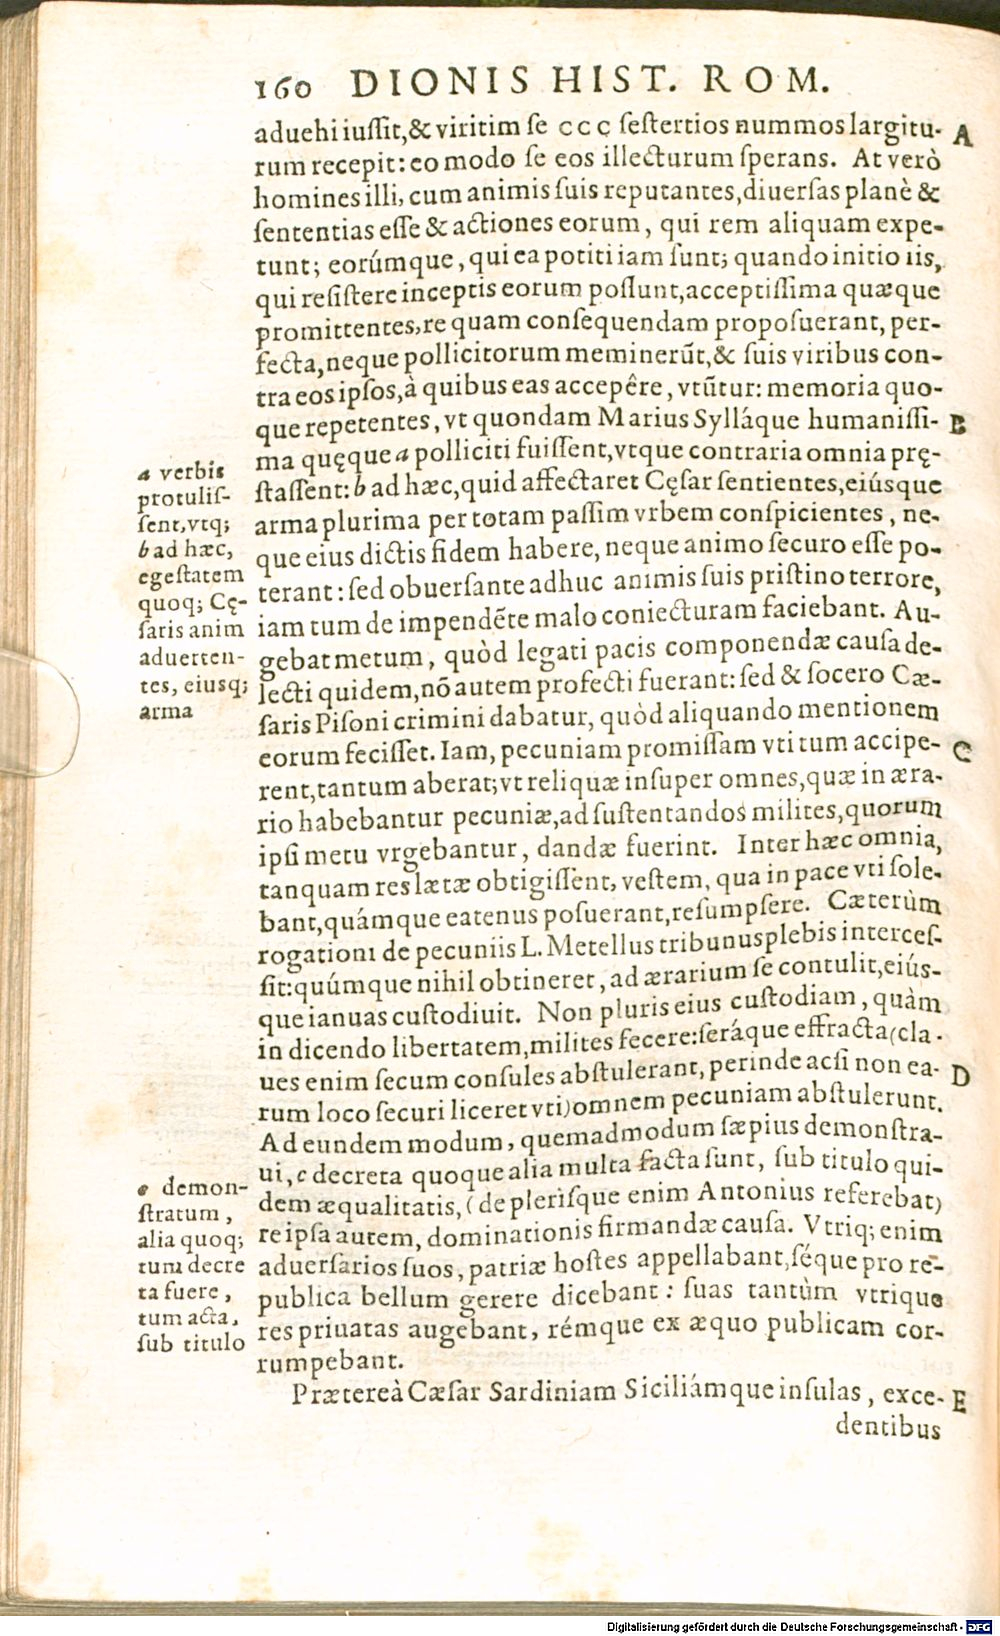 160 DIONIS HIST. ROM.
aduehi iussit,& viritim se c c c sestertios nummos largitu- A
rum recepit: eo modo se eos illecturum sperans. At verò
homines illi, cum animis suis reputantes,diuersas planè &
sententias esse & actiones eorum, qui rem aliquam expe-
tunt; eorúmque, qui ea potiti iam sunt; quando initio iis,
qui resistere inceptis eorum possunt,acceptissima quæque
promittentes,re quam consequendam proposuerant, per-
fecta,neque pollicitorum meminerũt,& suis viribus con-
tra eos ipsos,à quibus eas accepêre, vtũtur: memoria quo-
que repetentes, vt quondam Marius Sylláque humanissi- B
ma quęque a polliciti fuissent,vtque contraria omnia prę-
stassent: b ad hæc,quid affectaret Cęsar sentientes,eiúsque
arma plurima per totam passim vrbem conspicientes, ne-
que eius dictis fidem habere, neque animo securo esse po-
terant: sed obuersante adhuc animis suis pristino terrore,
iam tum de impendẽte malo coniecturam faciebant. Au-
gebat metum, quòd legati pacis componendæ causa de-
lecti quidem,nõ autem profecti fuerant: sed & socero Cæ-
saris Pisoni crimini dabatur, quòd aliquando mentionem
eorum fecisset. Iam, pecuniam promissam vti tum accipe- C
rent,tantum aberat;vt reliquæ insuper omnes,quæ in æra-
rio habebantur pecuniæ,ad sustentandos milites,quorum
ipsi metu vrgebantur, dandæ fuerint. Inter hæc omnia,
tanquam res lætæ obtigissent, vestem, qua in pace vti sole-
bant,quámque eatenus posuerant,resumpsere. Cæterùm
rogationi de pecuniis L. Metellus tribunus plebis interces-
sit:quúmque nihil obtineret, ad ærarium se contulit,eiús-
que ianuas custodiuit. Non pluris eius custodiam, quàm
in dicendo libertatem,milites fecere:seráque effracta(cla-
ues enim secum consules abstulerant, perinde acsi non ea- D
rum loco securi liceret vti)omnem pecuniam abstulerunt.
Ad eundem modum, quemadmodum sæpius demonstra-
ui, c decreta quoque alia multa facta sunt, sub titulo qui-
dem æqualitatis, (de plerisque enim Antonius referebat)
re ipsa autem, dominationis firmandæ causa. Vtriq; enim
aduersarios suos, patriæ hostes appellabant,séque pro re-
publica bellum gerere dicebant: suas tantùm vtrique
res priuatas augebant, rémque ex æquo publicam cor-
rumpebant.
Prætereà Cæsar Sardiniam Siciliámque insulas, exce- E
dentibus
a verbis
protulis-
sent,vtq;
b ad hæc,
egestatem
quoq; Cę-
saris anim
aduerten-
tes, eiusq;
arma
c demon-
stratum,
alia quoq;
tum decre
ta fuere,
tum acta,
sub titulo
Digitalisierung gefördert durch die Deutsche Forschungsgemeinschaft - DFG